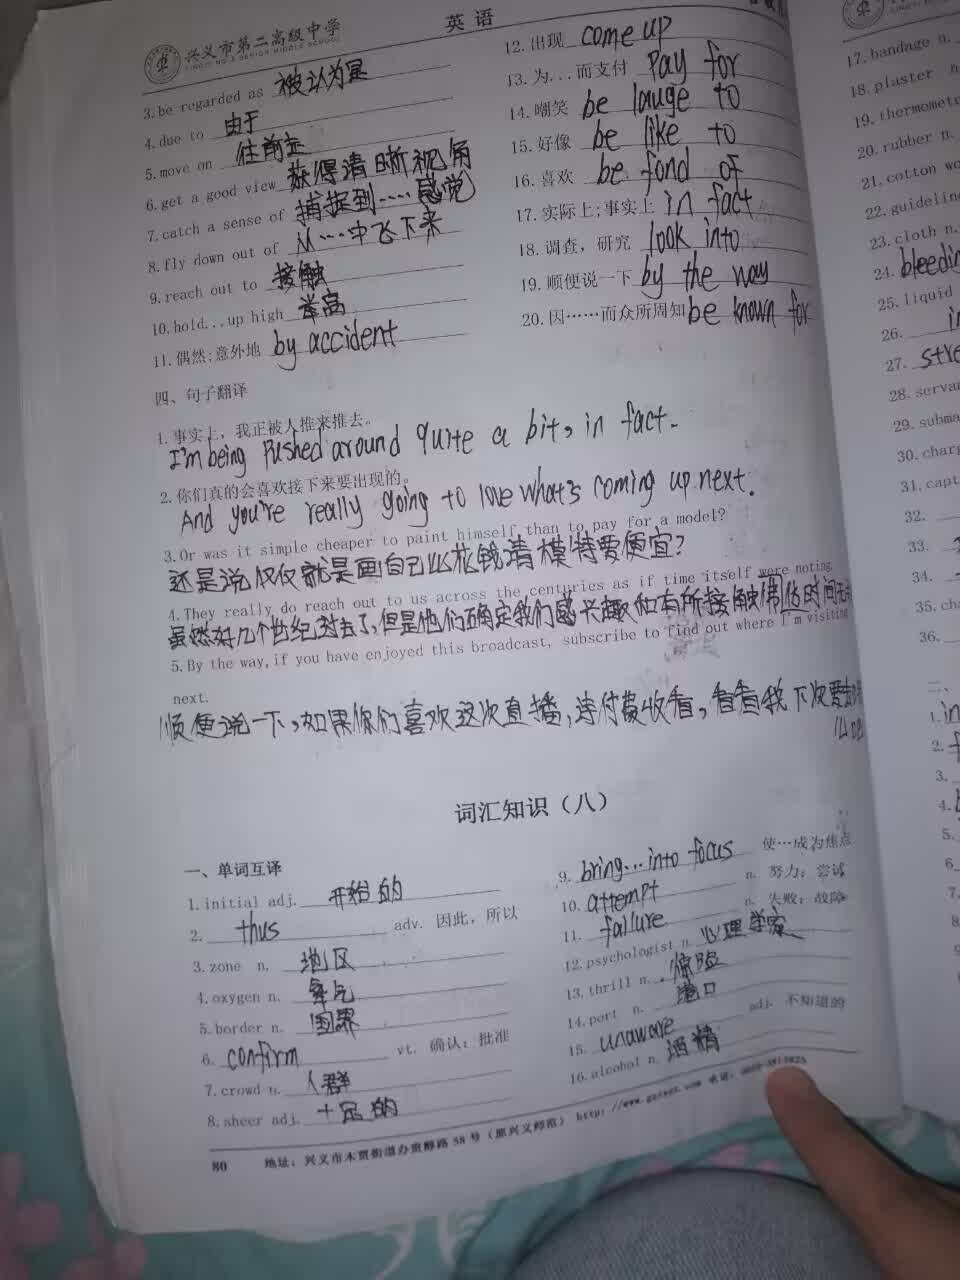 兴义市第二高级中学
英 语
3.be regarded as 被认为是
4.due to 由于
5.move on 往前走
6.get a good view 获得清晰视角
7.catch a sense of 捕捉到……感觉
8.fly down out of 从……中飞下来
9.reach out to 接触
10.hold...up high 举高
11.偶然;意外地 by accident
12.出现 come up
13.为...而支付 pay for
14.嘲笑 be lauge to
15.好像 be like to
16.喜欢 be fond of
17.实际上;事实上 in fact
18.调查，研究 look into
19.顺便说一下 by the way
20.因……而众所周知 be known for
四、句子翻译
1.事实上，我正被人推来推去。
I'm being pushed around quite a bit, in fact.
2.你们真的会喜欢接下来要出现的。
And you're really going to love what's coming up next.
3.Or was it simple cheaper to paint himself than to pay for a model?
还是说仅仅就是画自己比花钱请模特费便宜?
4.They really do reach out to us across the centuries as if time itself were noting.
虽然好几个世纪过去了,但是他们确定我们感兴趣和有所接触
5.By the way,if you have enjoyed this broadcast, subscribe to find out where I'm visiting
next.
顺便说一下,如果你们喜欢这次直播,请付费收看,看看我下次要去
词汇知识（八）
一、单词互译
1.initial adj. 开始的
2. thus adv. 因此，所以
3.zone n. 地区
4.oxygen n. 氧气
5.border n. 国界
6. confirm vt. 确认；批准
7.crowd n. 人群
8.sheer adj. 十足的
9. bring...into focus 使…成为焦点
10. attempt n. 努力；尝试
11. failure n. 失败；故障
12.psychologist n. 心理学家
13.thrill n. 惊险
14.port n. 港口
15. unaware adj. 不知道的
16.alcohol n. 酒精
80 地址：兴义市木贾街道办贵醇路 58 号（原兴义师范）
17.bandage n.
18.plaster
19.thermomet
20.rubber n.
21.cotton wo
22.guideline
23.cloth n.
24. bleeding
25.liquid
26. in
27. stre
28.serva
29.subma
30.charg
31.capt
32.
33.
34.
35.cha
36.